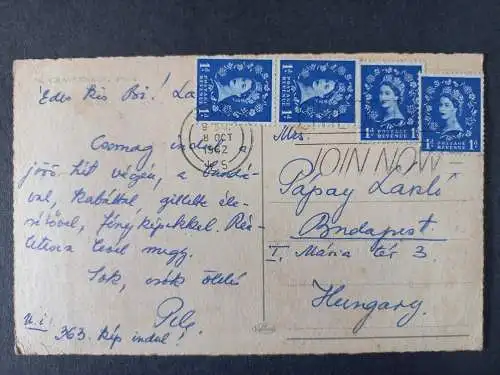 Édes kis Bi! La
Csomag indul a
jövő hét végén, a
val, kabáttal, gillette éle-
sítővel, fényképekkel. Rés-
letesen levél megy.
Sok, sok ölelés
Pele
u.i. 363. kép indul!
1D POSTAGE REVENUE 1D
1D POSTAGE REVENUE 1D
1D POSTAGE REVENUE 1D
1D POSTAGE REVENUE 1D
8 OCT
1962
JOIN NOW
Mrs.
Pápay László
Budapest
I. Mária tér 3
Hungary.